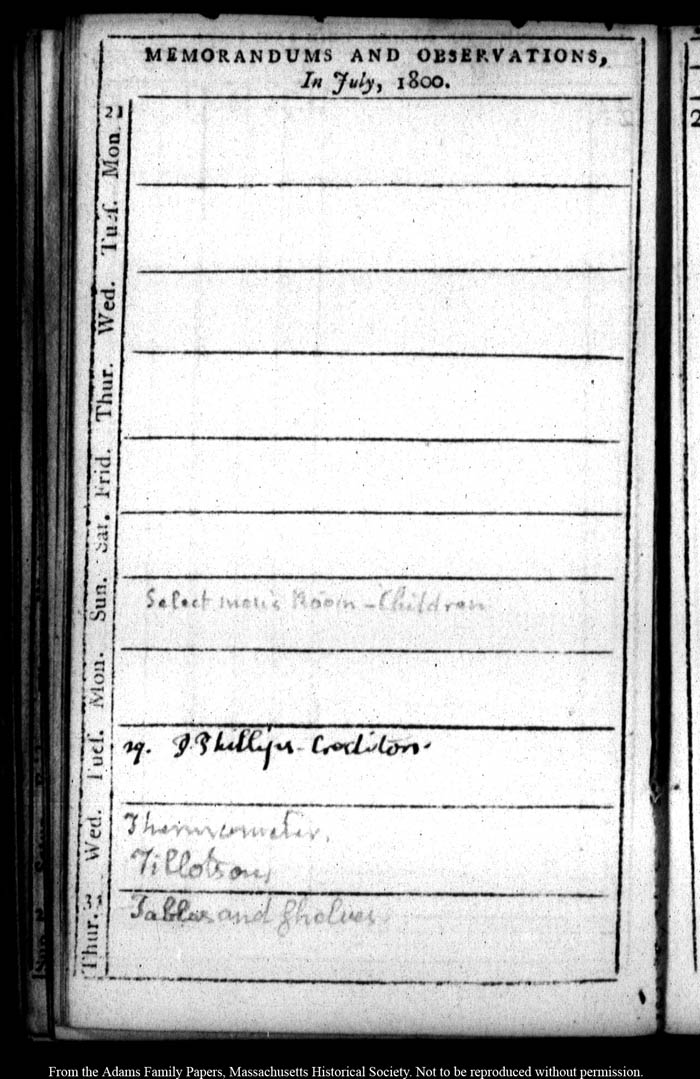 MEMORANDUMS AND OBSERVATIONS,
In July, 1800.
21
Mon
Tues.
Wed.
Thur.
Frid.
Sat.
Sun.
Select men's Room - Children
Mon.
Tues.
29. J. Phillips - Creditors.
Wed.
Thermometer.
Tillotson
31
Thur.
Tables and Shelves
From the Adams Family Papers, Massachusetts Historical Society. Not to be reproduced without permission.